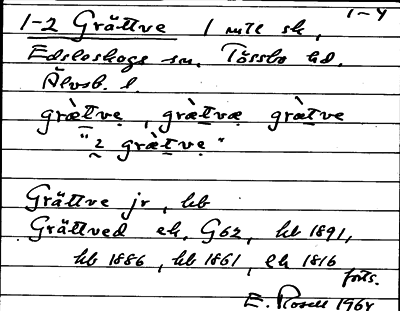 1-4
1-2 Grättve 1 mtl sk,
Edsleskogs sn. Tössbo hd.
Älvsb. l.
grætvę, grætvæ grætve
"2 grætvę"
Grättve jr, hb
Grättved ek, G62, hb 1891,
hb 1886, hb 1861, ek 1816
forts.
E. Rosell 1964